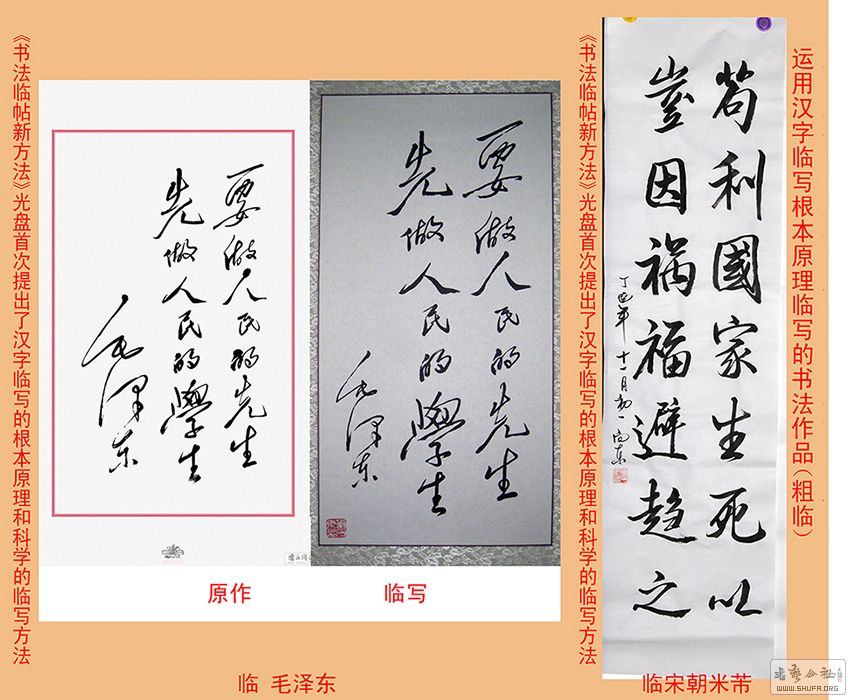 《书法临帖新方法》光盘首次提出了汉字临写的根本原理和科学的临写方法
要做人民的先生
先做人民的學生
毛泽东
原作
要做人民的先生
先做人民的學生
毛泽东
临写
临 毛泽东
《书法临帖新方法》光盘首次提出了汉字临写的根本原理和科学的临写方法
运用汉字临写根本原理临写的书法作品(粗临)
苟利國家生死以
豈因祸福避趋之
丁酉年 十一月初一 向东
临宋朝米芾
书艺公社
WWW.SHUFA.ORG